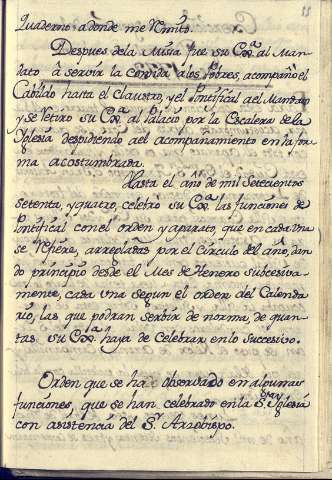 11
Quaderno adonde me remito.
Despues dela Missa fue su Exª. al Man-
dato â servir la comida álos Pobres, acompaño el
Cabildo hasta el claustro, y el Pontifical ael Mandato
y se retiro su Exª. al Palacio por la Escalera dela
Yglesia despidiendo ael acompañamiento en la for-
ma acostumbrada.
Hasta el año de mil Setecientos
Setenta, y quatro, celebro su Exª. las funciones de
Pontifical con el orden y aparato, que en cada una
se refiere, arregladas por el Circulo del año, dan-
do principio desde el Mes de Henero subcesiva-
mente, cada una segun el orden del Calenda-
rio, las que podran serbir de norma, de quan-
tas su Exª. haya de Celebrar enlo Succesivo.
Orden que se ha observado en algunas
funciones, que se han celebrado en la Sta. Yglesia
con asistencia del Sr. Arzobispo.